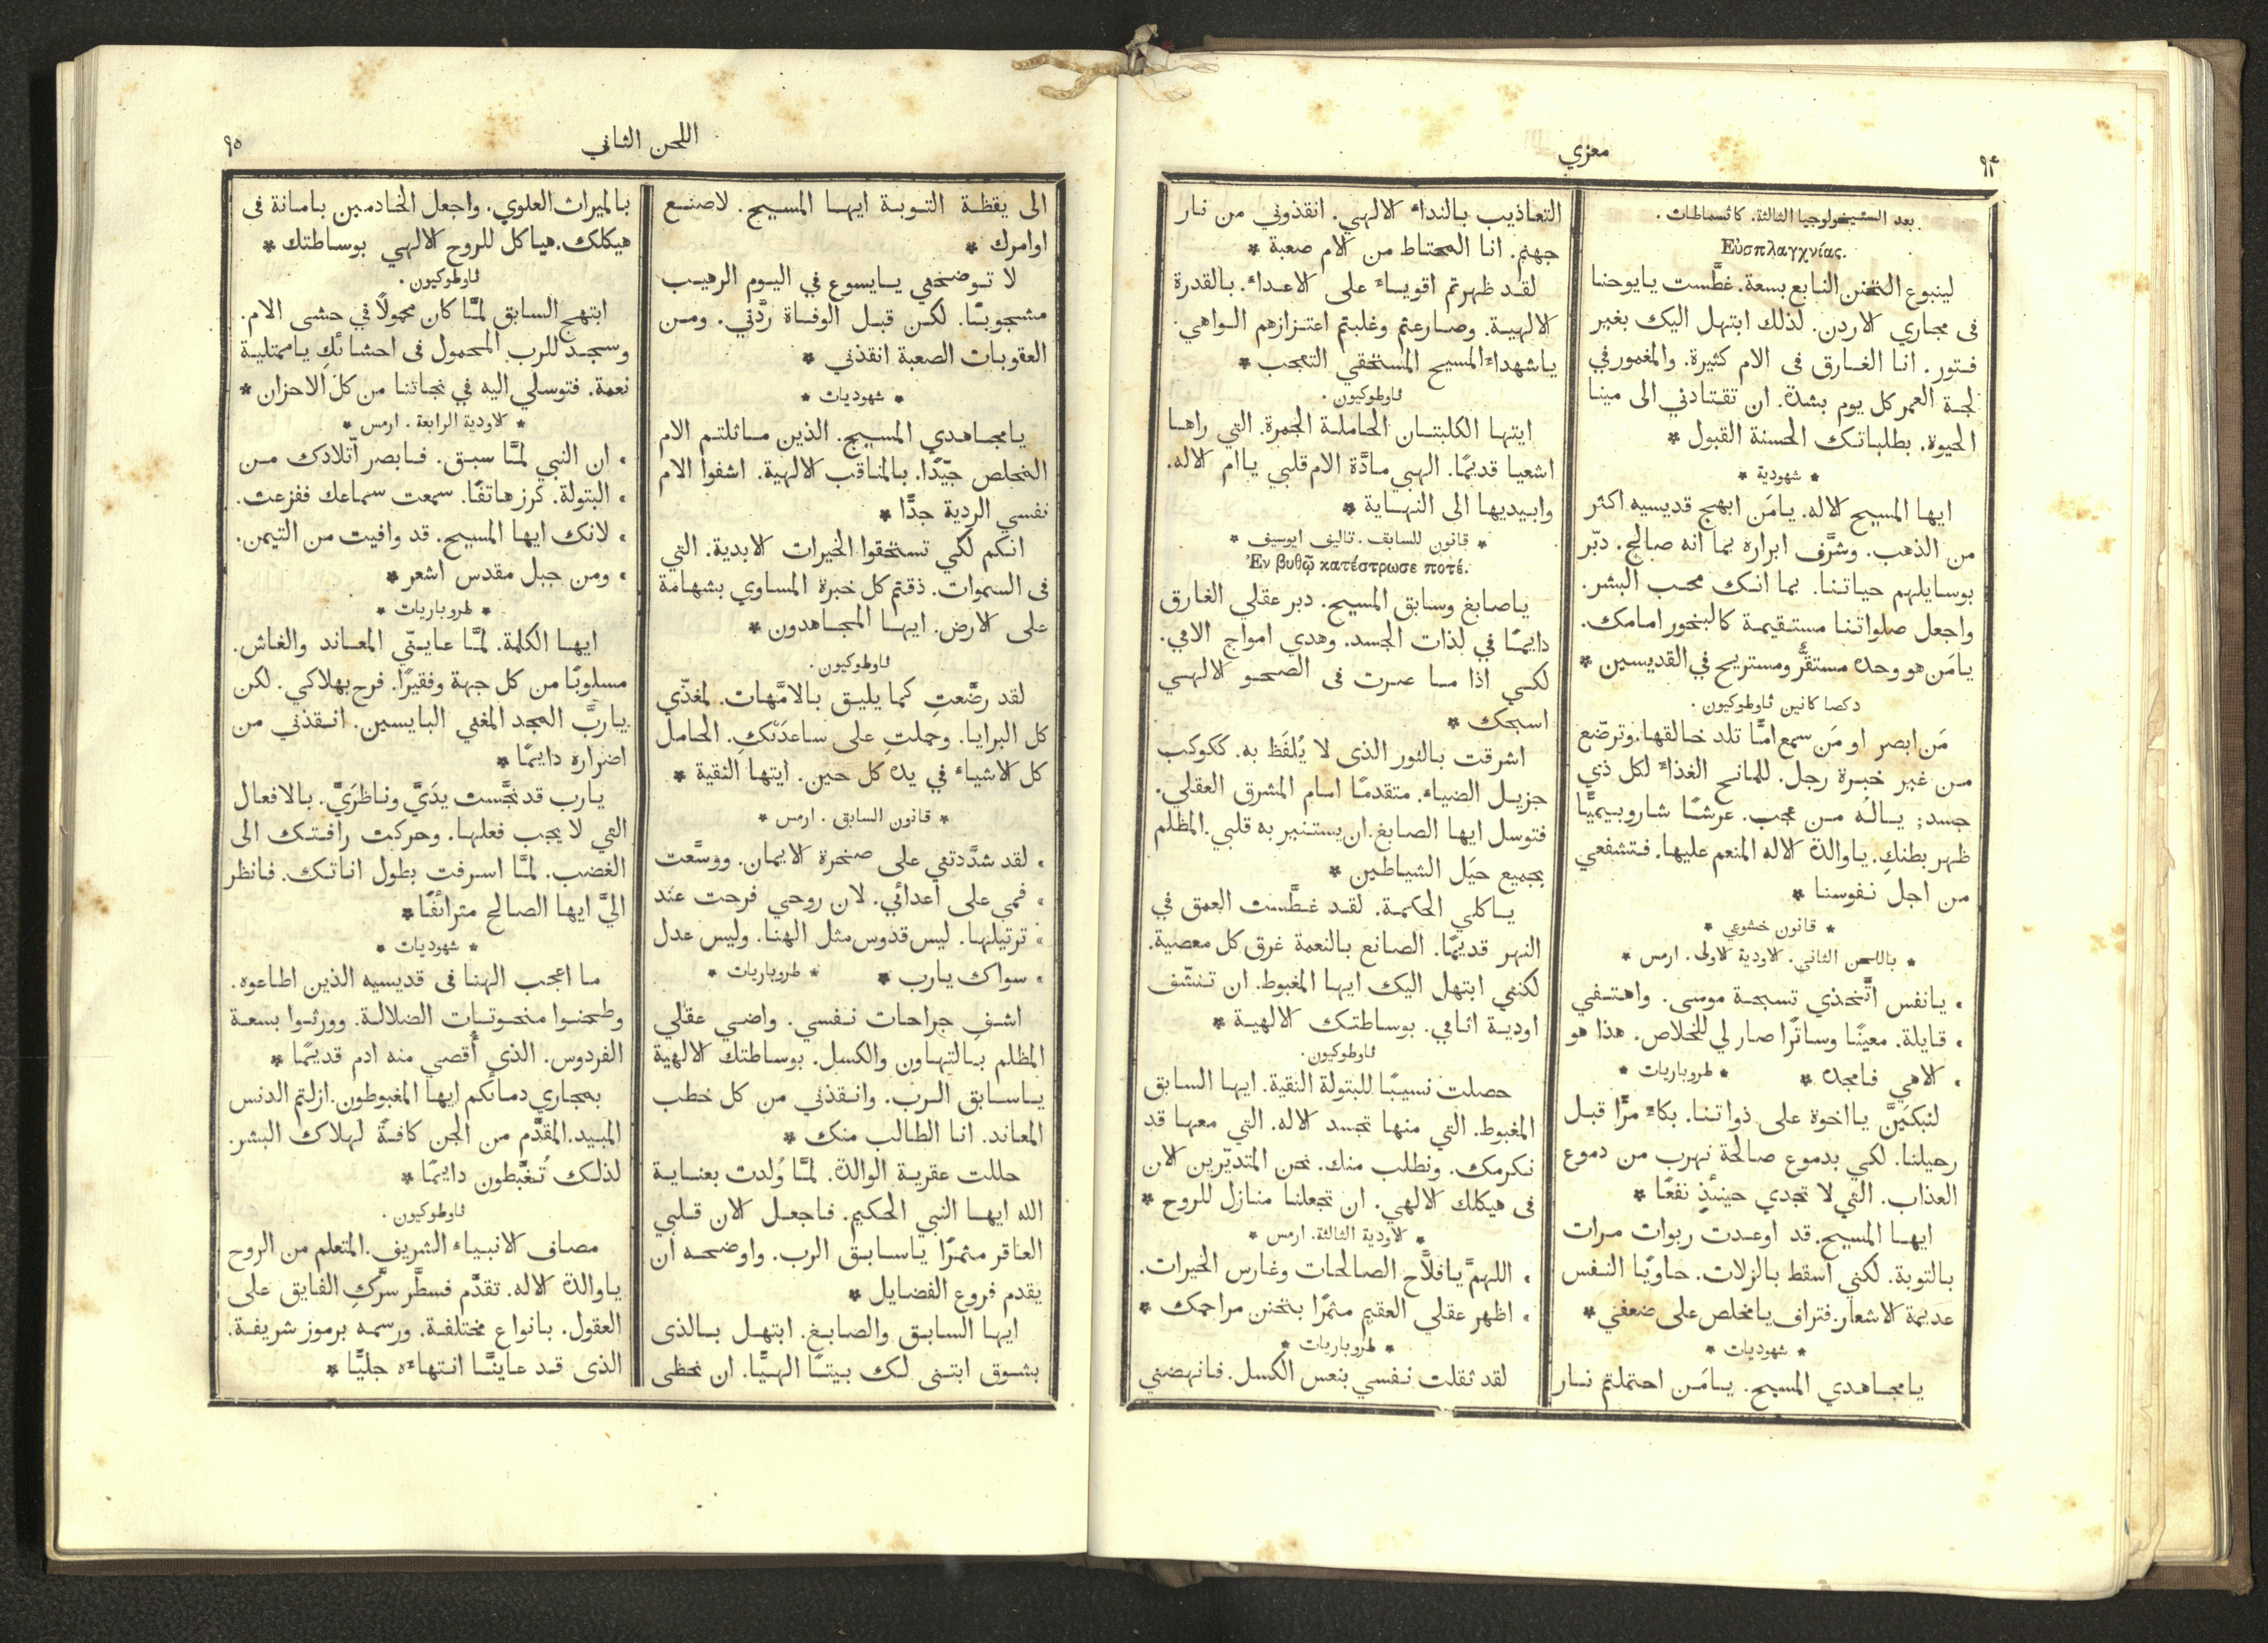 معزي
٩٤
بعد الستيخولوجيا الثالثة. كاثسماطات.
Εὐσπλαγχνίας.
لينبوع التحنن النابع بسعة. غطَّست يايوحنا
فى مجاري الاردن. لذلك ابتهل اليك بغير
فتور. انا الغارق فى الام كثيرة. والمغمور في
لجة العمر كل يوم بشدة. ان تقتادني الى مينا
الحيوة. بطلباتك الحسنة القبول *
* شهودية *
ايها المسيح الاله. يامَن ابهج قديسيه اكثر
من الذهب. وشرَّف ابراره بما انه صالح. دبّر
بوسايلهم حياتنا. بما انك محب البشر.
واجعل صلواتنا مستقيمة كالبخور امامك.
يامَن هو وحده مستقرٌّ ومستريح في القديسين *
دكصا كانين ثاوطوكيون.
مَن ابصر او مَن سمع امًّا تلد خالقها. وترضّع
من غير خبرة رجل. للمانح الغذاء لكل ذي
جسد; يالهُ من عجب. عرشًا شاروبيميًّا
ظهر بطنكِ. ياوالدة الاله المنعم عليها. فتشفعي
من اجل نفوسنا *
* قانون خشوعي *
* باللحن الثاني. الاودية الاولى. ارمس *
، يانفس اتَّخذي تسبحة موسى. واهتفي
، قايلة. معينًا وساترًا صار لي للخلاص. هذا هو
، الاهي فامجده * * طروباريات *
لنبكيَنَّ يااخوة على ذواتنا. بكاءً مرًّا قبل
رحيلنا. لكي بدموع صالحة نهرب من دموع
العذاب. التي لا تجدي حينئذٍ نفعًا *
ايها المسيح. قد اوعدت ربوات مرات
بالتوبة. لكني اسقط بالزلات. حاويًا النفس
عديمة الاشعار. فتراف يامخلص على ضعفي *
* شهوديات *
يامجاهدي المسيح. يامَن احتملتم نار
التعاذيب بالنداء الالهي. انقذوني من نار
جهنم. انا المحتاط من الام صعبة *
لقد ظهرتم اقوياءً على الاعداء. بالقدرة
الالهية. وصارعتم وغلبتم اعتزازهم الواهي.
ياشهداء المسيح المستحقي التعجب *
ثاوطوكيون.
ايتها الكلبتان الحاملة الجمرة. التي راها
اشعيا قديمًا. الهبي مادَّة الام قلبي ياام الاله.
وابيديها الى النهاية *
* قانون للسابق. تاليف ايوسيف *
Ἐν βυθῷ κατέστρωσε ποτέ.
ياصابغ وسابق المسيح. دبر عقلي الغارق
دايمًا في لذات الجسد. وهدي امواج الامي.
لكي اذا ما صرت فى الصحو الالهي
اسبحك *
اشرقت بالنور الذى لا يُلفَظ به. ككوكب
جزيل الضياء. متقدمًا امام المشرق العقلي.
فتوسل ايها الصابغ. ان يستنير به قلبي. المظلم
بجميع حيَل الشياطين *
ياكلي الحكمة. لقد غطَّست العمق في
النهر قديمًا. الصانع بالنعمة غرق كل معصية.
لكنني ابتهل اليك ايها المغبوط. ان تنشّف
اودية اثامي. بوساطتك الالهية *
ثاوطوكيون.
حصلت نسيبًا للبتولة النقية. ايها السابق
المغبوط. التي منها تجسد الاله. التي معها قد
نكرمك. ونطلب منك. نحن المتديّرين الان
فى هيكلك الالهي. ان تجعلنا منازل للروح *
* الاودية الثالثة. ارمس *
، اللهمَّ يافلَّاح الصالحات وغارس الخيرات.
، اظهر عقلي العقيم مثمرًا بتحنن مراحمك *
* طروباريات *
لقد ثقلت نفسي بنعس الكسل. فانهضني
اللحن الثاني
٩٥
الى يقظة التوبة ايها المسيح. لاصنع
اوامرك *
لا توضحني يايسوع في اليوم الرهيب
مشجوبًا. لكن قبل الوفاة ردَّني. ومن
العقوبات الصعبة انقذني *
* شهوديات *
يامجاهدي المسيح. الذين ماثلتم الام
المخلص جيّدًا. بالمناقب الالهية. اشفوا الام
نفسي الردية جدًّا *
انكم لكي تستحقوا الخيرات الابدية. التي
فى السموات. ذقتم كل خبرة المساوي بشهامة
على الارض. ايها المجاهدون *
ثاوطوكيون.
لقد رضَّعتِ كما يليق بالامَّهات. لمغذّي
كل البرايا. وحملتِ على ساعدَيْكِ. الحامل
كل الاشياء في يده كل حين. ايتها النقية *
* قانون السابق. ارمس *
، لقد شدَّدتني على صخرة الايمان. ووسَّعت
، فمي على اعدائي. لان روحي فرحت عند
، ترتيلها. ليس قدوس مثل الهنا. وليس عدل
، سواك يارب * * طروباريات *
اشفِ جراحات نفسي. واضي عقلي
المظلم بالتهاون والكسل. بوساطتك الالهية
ياسابق الرب. وانقذني من كل خطب
المعاند. انا الطالب منك *
حللت عقرية الوالدة. لمَّا وُلدت بعناية
الله ايها النبي الحكيم. فاجعل الان قلبي
العاقر مثمرًا ياسابق الرب. واوضحه ان
يقدم فروع الفضايل *
ايها السابق والصابغ. ابتهل بالذى
بشوق ابتنى لك بيتًا الهيًّا. ان نحظى
بالميراث العلوي. واجعل الخادمين بامانة فى
هيكلك. هياكل للروح الالهي بوساطتك *
ثاوطوكيون.
ابتهج السابق لمَّا كان محمولًا في حشى الام.
وسجد للرب المحمول فى احشائكِ ياممتلية
نعمة. فتوسلي اليه في نجاتنا من كل الاحزان *
* الاودية الرابعة. ارمس *
، ان النبي لمَّا سبق. فابصر اتّلادك من
، البتولة. كرز هاتفًا. سمعت سماعك ففزعت.
، لانك ايها المسيح. قد وافيت من التيمن.
، ومن جبل مقدس اشعر *
* طروباريات *
ايها الكلمة. لمَّا عاينّي المعاند والغاش.
مسلوبًا من كل جهة وفقيرًا. فرح بهلاكي. لكن
ياربَّ المجد المغني البايسين. انقذني من
اضراره دايمًا *
يارب قد نجَّست يدَيَّ وناظرَيَّ. بالافعال
التي لا يجب فعلها. وحركت رافتك الى
الغضب. لمَّا اسرفت بطول اناتك. فانظر
اليَّ ايها الصالح مترائفًا *
* شهوديات *
ما اعجب الهنا فى قديسيه الذين اطاعوه.
وطحنوا منحوتات الضلالة. وورثوا بسعة
الفردوس. الذي أُقصي منه ادم قديمًا *
بمجاري دمائكم ايها المغبوطون. ازلتم الدنس
المبيد. المقدَّم من الجن كافةً لهلاك البشر.
لذلك تُغبَّطون دايمًا *
ثاوطوكيون.
مصاف الانبياء الشريف. المتعلم من الروح
ياوالدة الاله. تقدَّم فسطَّر سرَّكِ الفايق على
العقول. بانواع مختلفة. ورسمه برموز شريفة.
الذى قد عاينَّا انتهاءه جليًّا *